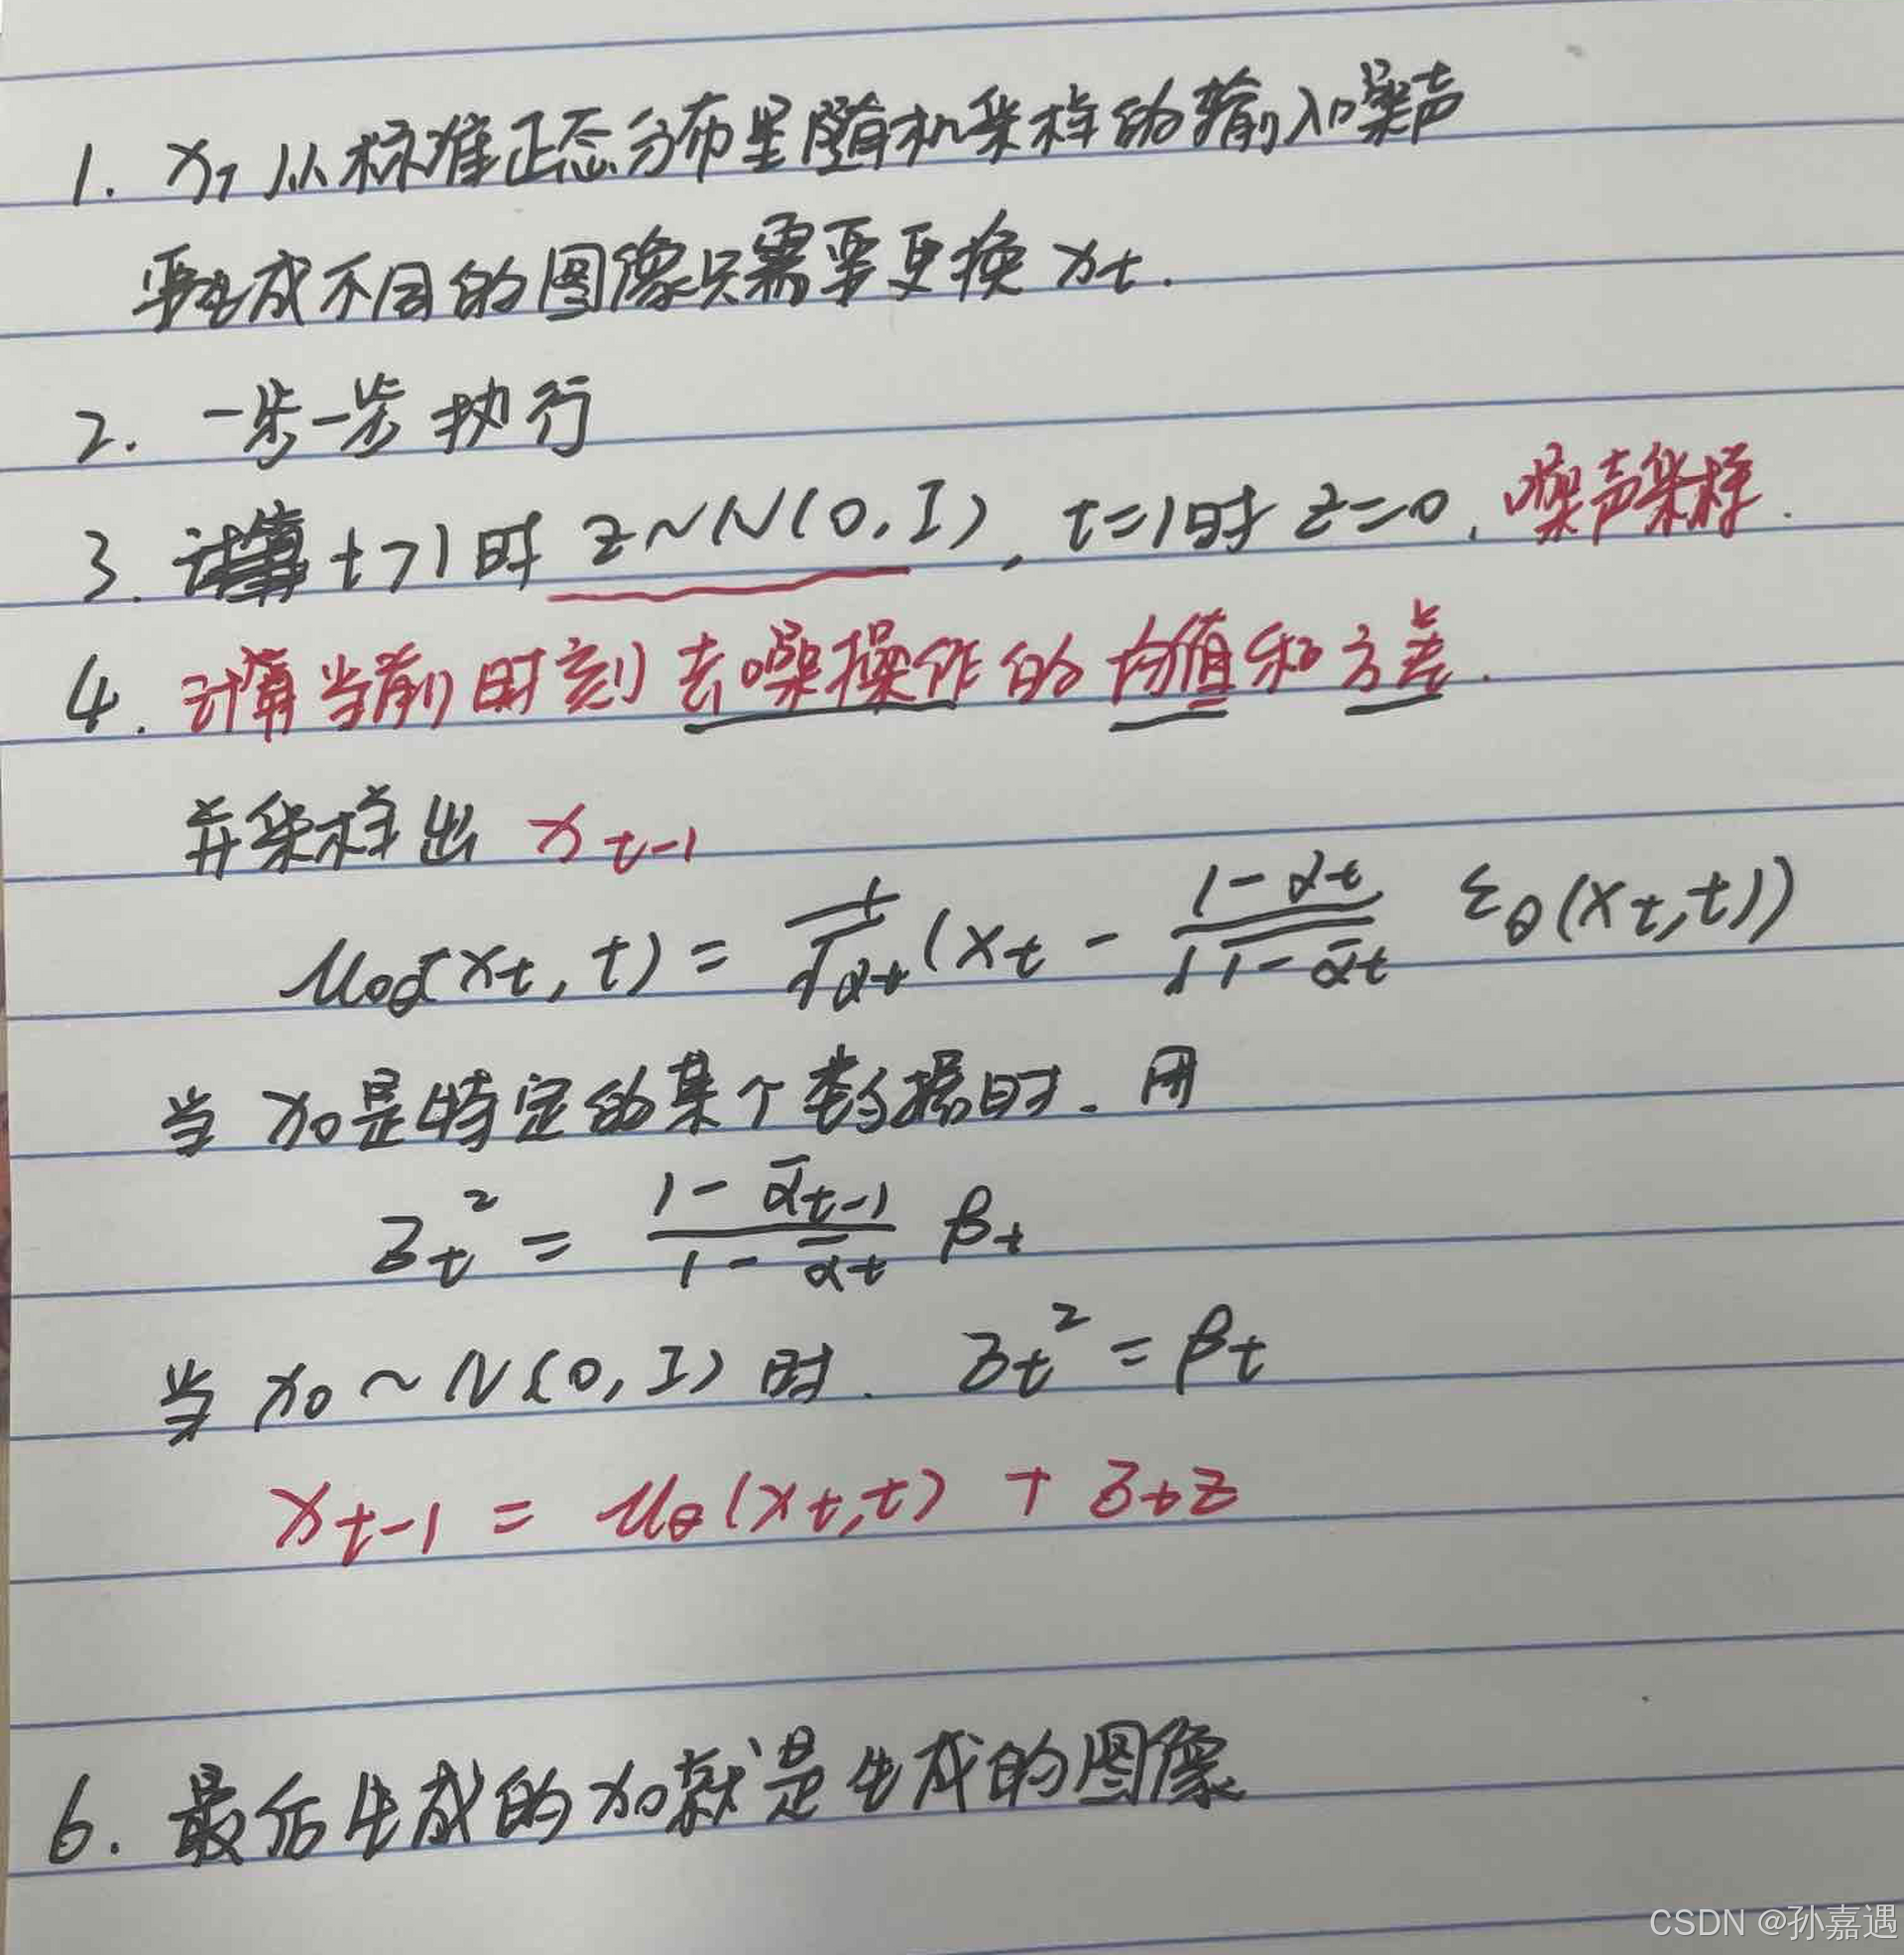 1. x_T 从标准正态分布里随机采样的输入噪声
要生成不同的图像只需要更换 x_t.
2. 一步一步执行
3. 计算 t>1时 z~N(0,I), t=1时 z=0. 噪声采样.
4. 计算当前时刻去噪操作的均值和方差.
并采样出 x_{t-1}
μ_θ(x_t, t) = 1/√α_t (x_t - (1-α_t)/√(1-ᾱ_t) ε_θ(x_t,t))
当 x_0 是特定的某个数据时. 用
σ_t² = (1-ᾱ_{t-1})/(1-ᾱ_t) β_t
当 x_0 ~ N(0,I) 时. σ_t² = β_t
x_{t-1} = μ_θ(x_t,t) + σ_t z
6. 最后生成的 x_0 就是生成的图像
CSDN @孙嘉遇